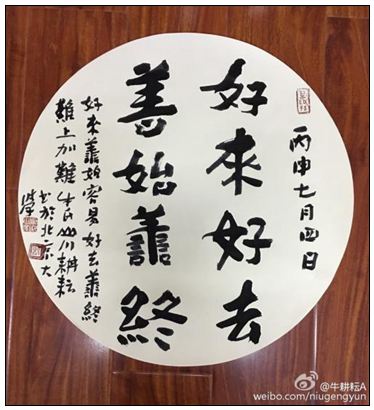 丙申七月四日
好來好去
善始善終
好來善始容易好去善終
難上加難牛氏山川耕耘
書於北京大
學
@牛耕耘A
weibo.com/niugengyun